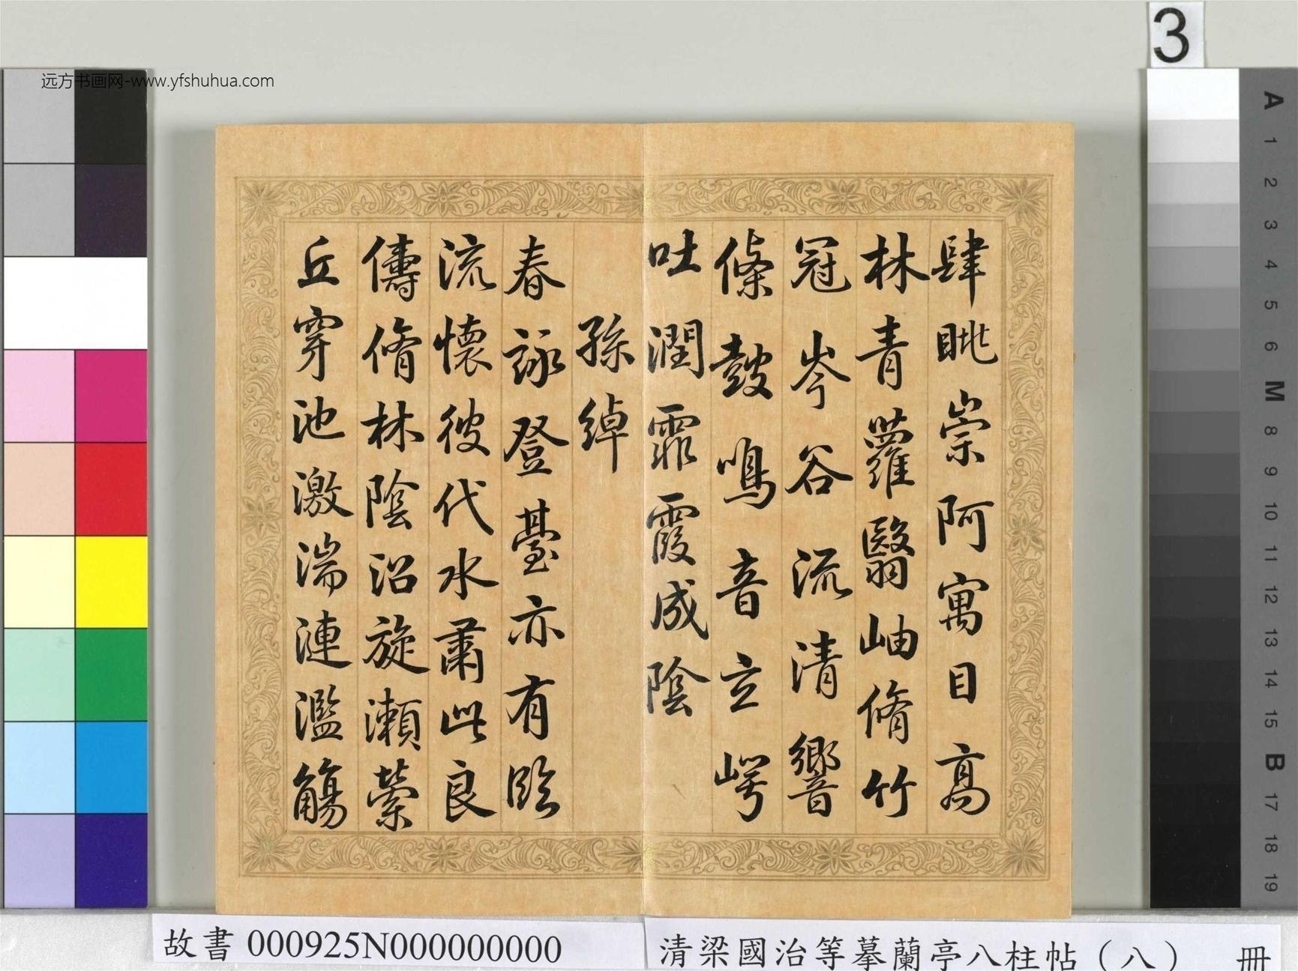 远方书画网-www.yfshuhua.com
3
肆眺崇阿寓目高
林青蘿翳岫脩竹
冠岑谷流清響
條鼓鳴音玄崿
吐潤霏霞成陰
孫綽
春詠登臺亦有臨
流懷彼伐水肅此良
儔脩林陰沼旋瀨縈
丘穿池激湍連濫觴
A
1
2
3
4
5
6
M
8
9
10
11
12
13
14
15
B
17
18
19
故書 000925N000000000
清梁國治等摹蘭亭八柱帖（八） 冊